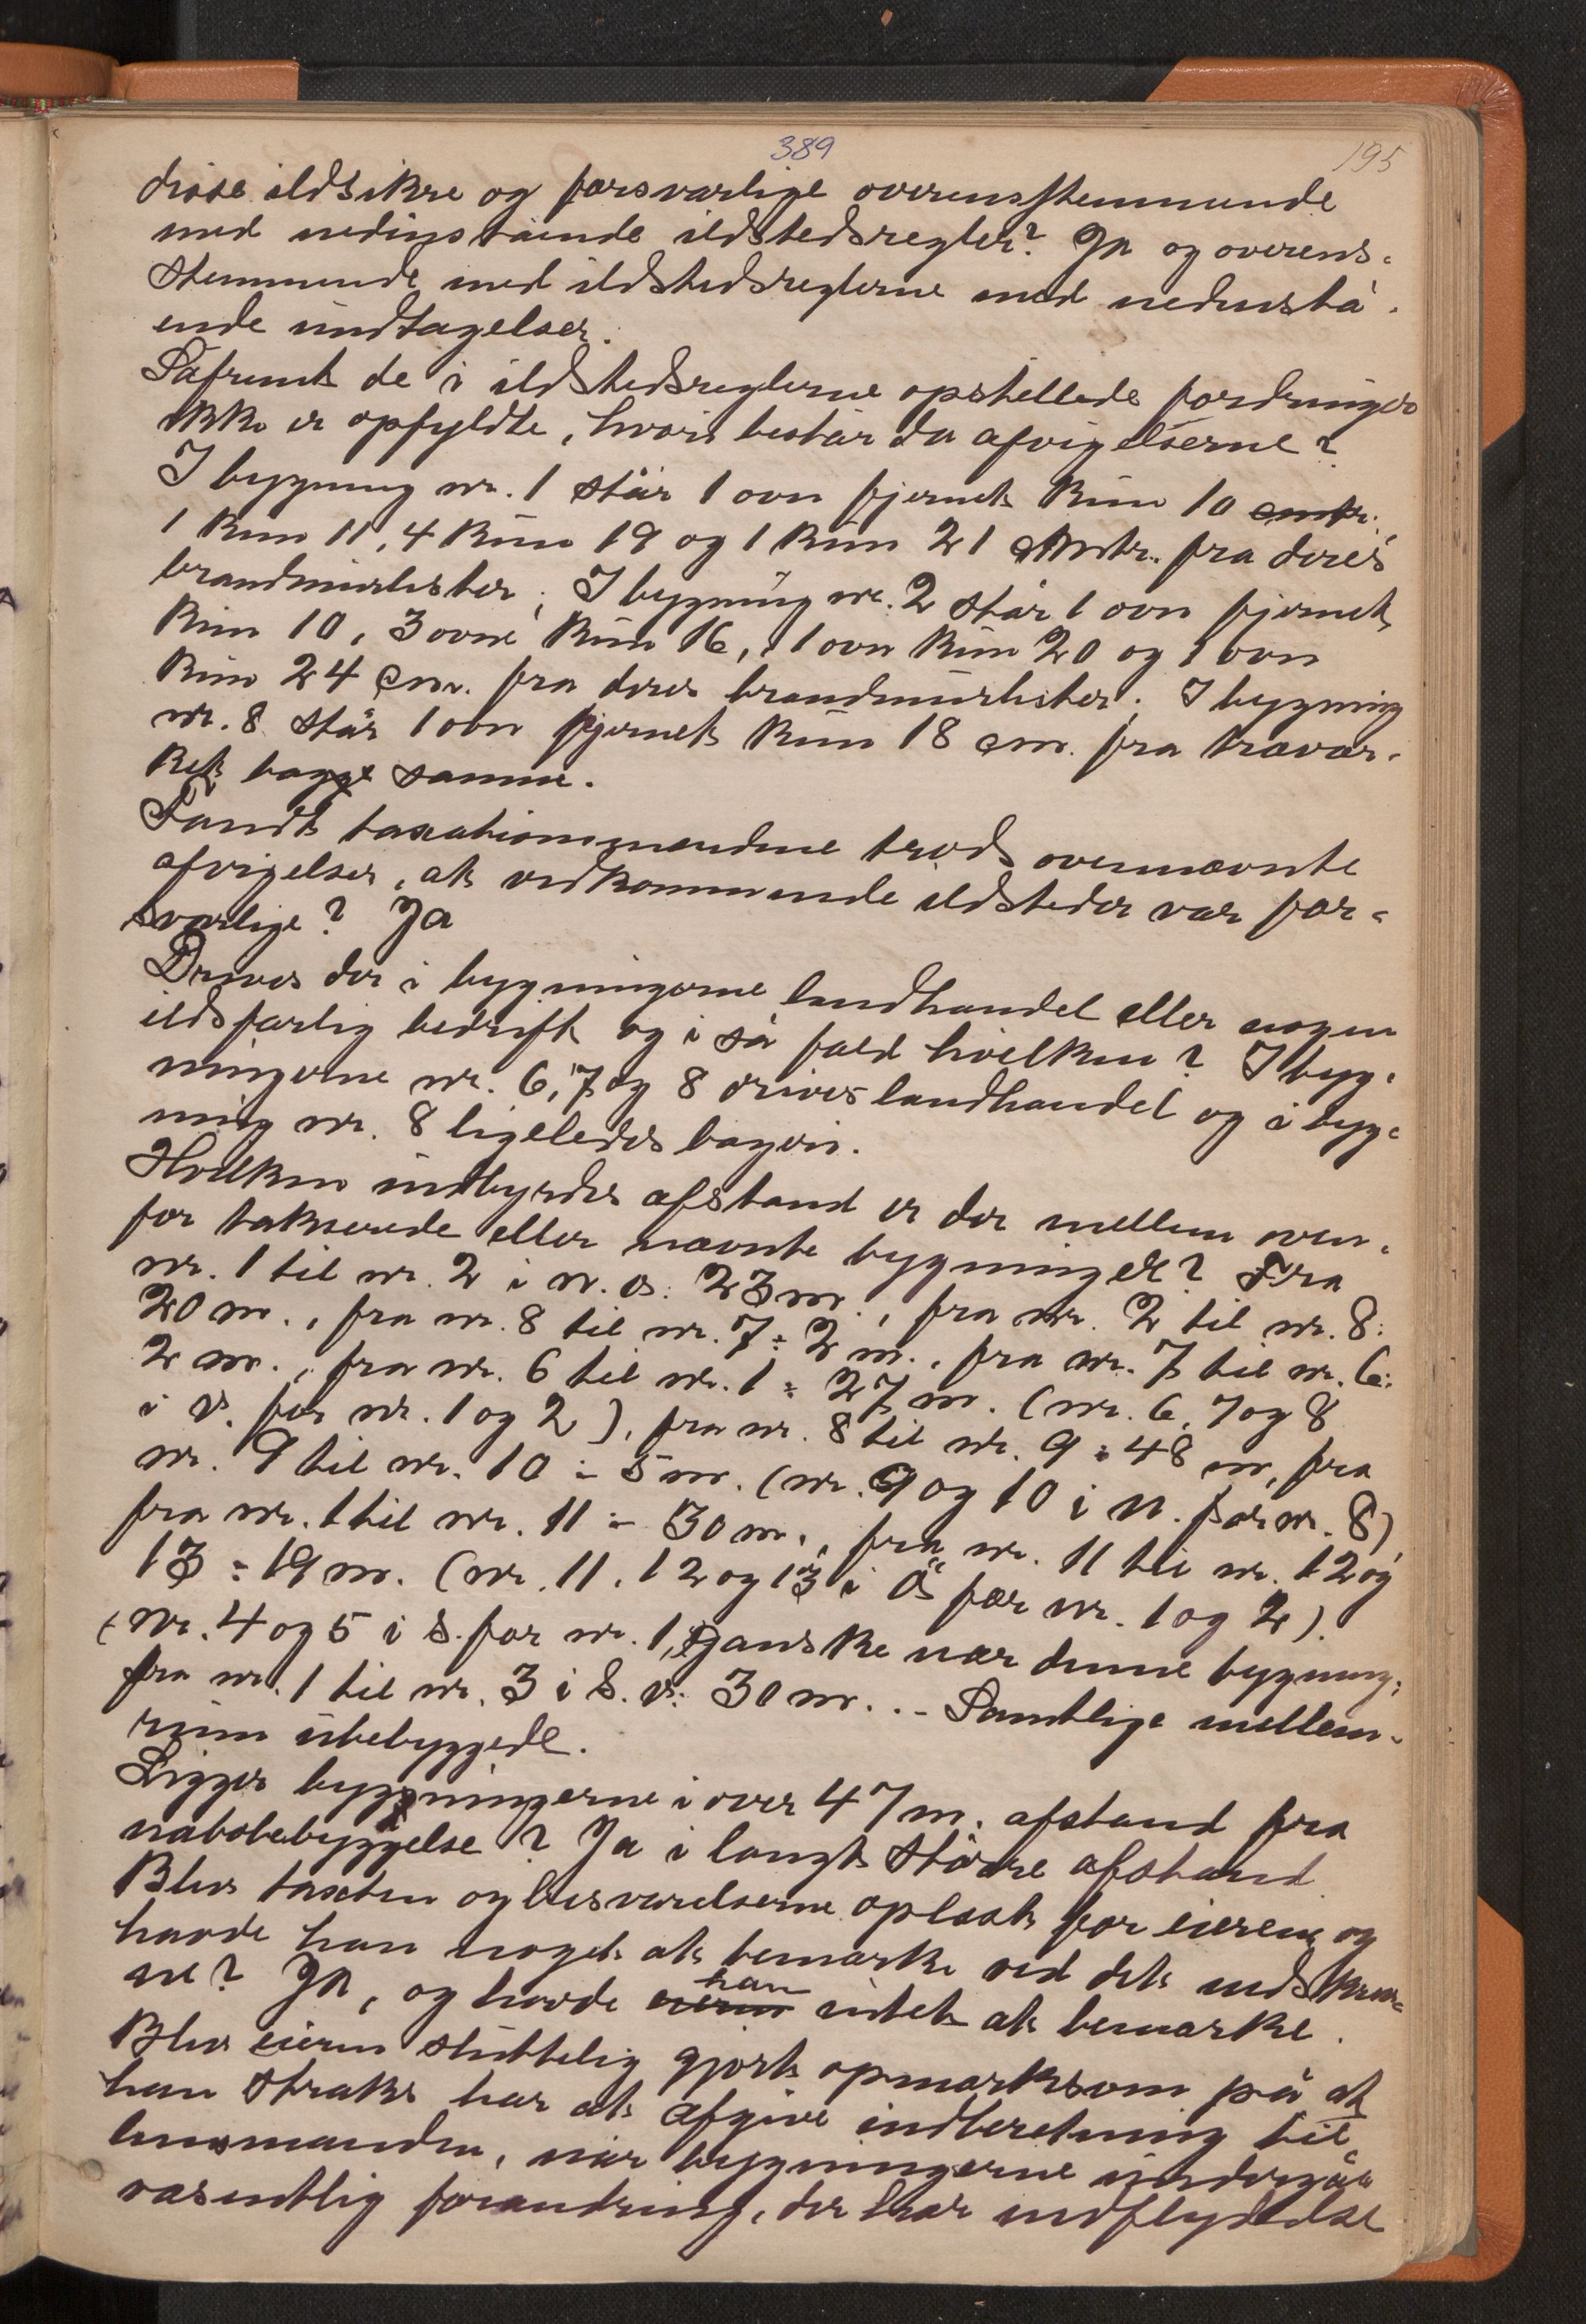 389
195
disse ildsikre og forsvarlige overensstemmende
med nedenstående ildstedsregler? Ja og overens-
stemmende med ildstedsreglerne med nedenstå-
ende undtagelser.
Såfremt de i ildstedsreglerne opstillede fordringer
ikke er opfyldte, hvori består da afvigelserne?
I bygning nr. 1 står 1 ovn fjernet kun 10 cmtr.,
1 kun 11, 4 kun 19 og 1 kun 21 cmtr. fra deres
brandmurlister; I bygning nr. 2 står 1 ovn fjernet
kun 10, 3 ovne kun 16, 1 ovn kun 20 og 1 ovn
kun 24 cm. fra deres brandmurlister; I bygning
nr. 8 står 1 ovn fjernet kun 18 cm. fra trævær-
ket bag samme.
Fandt taxationsmændene trods ovennævnte
afvigelser, at vedkommende ildsteder var for-
svarlige? Ja
Drives der i bygningerne landhandel eller nogen
ildsfarlig bedrift og i så fald hvilken? I byg-
ningerne nr. 6, 7 og 8 drives landhandel og i byg-
ning nr. 8 ligeledes bageri.
Hvilken indbyrdes afstand er der mellem oven-
for takserede eller nævnte bygninger? Fra
nr. 1 til nr. 2 i n. v: 23 m., fra nr. 2 til nr. 8:
20 m., fra nr. 8 til nr. 7: 2 m., fra nr. 7 til nr. 6:
2 m., fra nr. 6 til nr. 1: 27 m. (nr. 6, 7 og 8
i v. for nr. 1 og 2), fra nr. 8 til nr. 9: 48 m, fra
nr. 9 til nr. 10 = 5 m. (nr. 9 og 10 i n. for nr. 8),
fra nr. 1 til nr. 11 = 30 m., fra nr. 11 til nr. 12 og
13 = 19 m. (nr. 11, 12 og 13 i ö for nr. 1 og 2).
(nr. 4 og 5 i s. for nr. 1, ganske nær denne bygning;
fra nr. 1 til nr. 3 i S. v: 30 m. .- Samtlige mellem-
rum ubebyggede.
Ligger bygningerne i over 47 m. afstand fra
nabobebyggelse? Ja i langt større afstand
Blev taxten og besvarelserne oplæst for eieren og
havde han noget at bemærke ved det nedskrev-
ne? Ja, og havde eieren han intet at bemærke.
Blev eieren sluttelig gjort opmærksom på at
han straks har at afgive indberetning til
lensmanden, når bygningerne undergår
væsentlig forandring, der har indflydelse